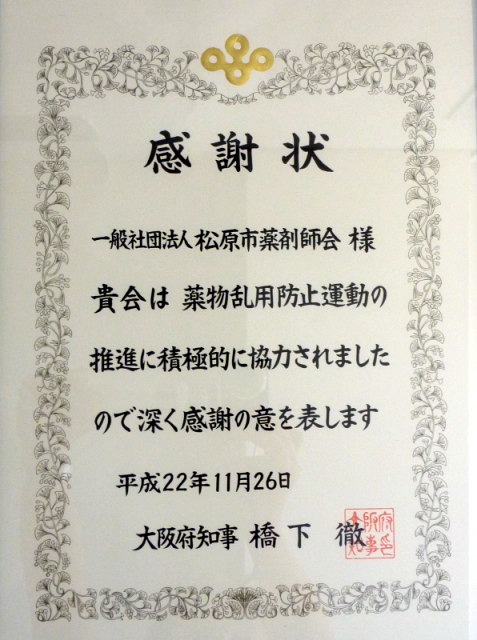 感謝状
一般社団法人松原市薬剤師会 様
貴会は 薬物乱用防止運動の
推進に積極的に協力されました
ので深く感謝の意を表します
平成22年11月26日
大阪府知事 橋下 徹
大阪府知事印